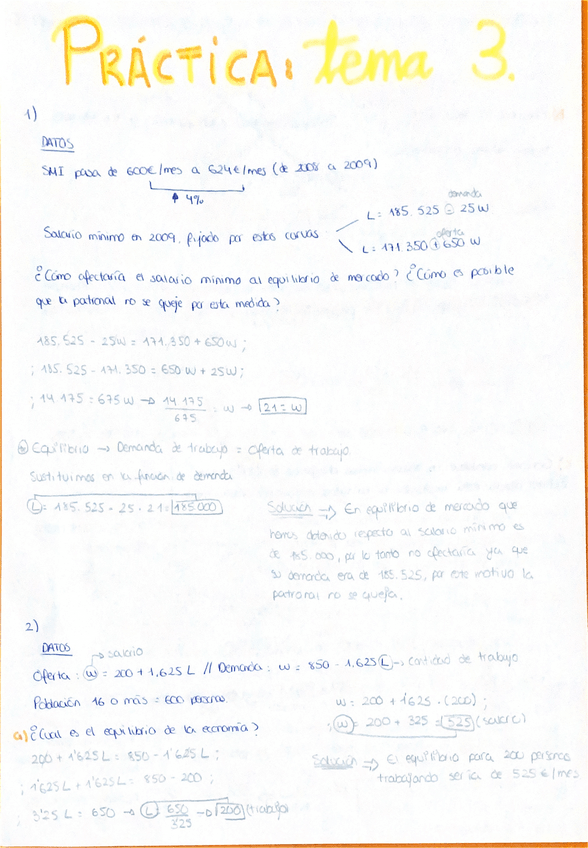 PRÁCTICA: tema 3.
1)
DATOS
SMI pasa de 600€/mes a 624€/mes (de 2008 a 2009)
↑ 4%
demanda
L = 185.525 - 25W
Salario mínimo en 2009, fijado por estas curvas
oferta
L = 171.350 + 650 W
¿Cómo afectaría el salario mínimo al equilibrio de mercado? ¿Cómo es posible
que la patronal no se queje por esta medida?
185.525 - 25W = 171.350 + 650W ;
; 185.525 - 171.350 = 650 W + 25W ;
; 14 175 = 675 W → 14 175 / 675 = W → 21 = W
Equilibrio → Demanda de trabajo = Oferta de trabajo
Sustituimos en la función de demanda
L = 185.525 - 25 · 21 = 185.000
Solución → En equilibrio de mercado que
hemos obtenido respecto al salario mínimo es
de 185.000, por lo tanto no afectaría ya que
su demanda era de 185.525, por este motivo la
patronal no se queja.
2)
DATOS
→ salario
Oferta : W = 200 + 1,625 L // Demanda : W = 850 - 1,625 L → cantidad de trabajo
Población 16 o más = 600 personas
a) ¿Cuál es el equilibrio de la economía?
200 + 1'625 L = 850 - 1'625 L ;
; 1'625 L + 1'625 L = 850 - 200 ;
; 3'25 L = 650 → L = 650 / 3'25 → 200 (trabajo)
W = 200 + 1'625 · (200) ;
; W = 200 + 325 = 525 (salario)
Solución → El equilibrio para 200 personas
trabajando sería de 525 €/mes